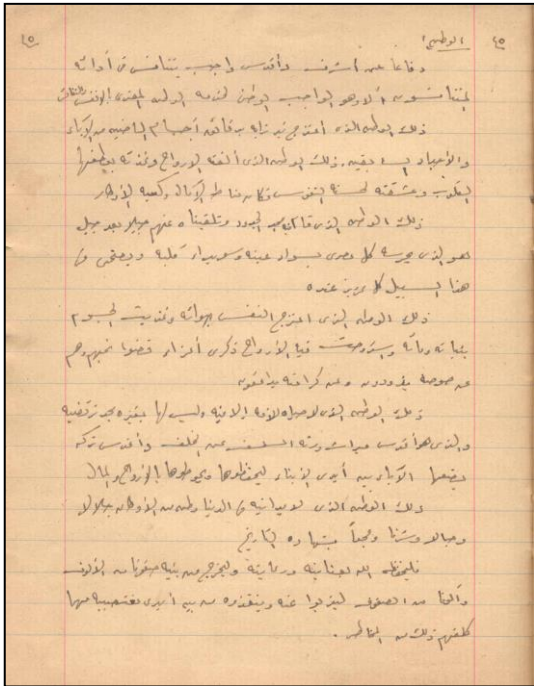 ٢٥ الوطن! ٢٥
دفاعا عن أشرف وأقدس واجب يتنافس في أدائه
المتنافسون ألا وهو الواجب الوطني لخدمة الوطن المفدى بالأنفس
ذلك الوطن الذى امتزج ترابه برفات أجسام الماضين من الآباء
والأجداد ذلك الوطن الذى ألفته الأرواح وغذته بعطفها
القلوب وعشقته لحسنه النفوس فكان مناط الآمال وكعبة الأوطار
ذلك الوطن الذى مجد الجدود وتلقيناه عنهم جيلا بعد جيل
هو الذى يحرسه كل مصرى بسواد عينه وسويداء قلبه ويضحى في
هذا السبيل كل عزيز عنده
ذلك الوطن الذى امتزج النفس بهوائه وغذيت الجسوم
بنباته ومائه واستروحت فيه الأرواح ذكرى أعزاء قضوا نحبهم وهم
عن حوضه يذودون وعن كرامته يدافعون
ذلك الوطن الذى لا حياة للأمة إلا فيه وليس لها بغيره مجد ترتضيه
والذى هو أقدس ميراث ورثه السلف عن الخلف وأقدس تركه
يضعها الآباء بين أيدى الأبناء ليحفظوها ويحوطوها بالأرواح والمال
ذلك الوطن الذى لا يدانيه في الدنيا وطن من الأوطان جلالا
وجمالا وسنا ومجدا بشهادة التاريخ
فليحفظه الله بعنايته ورعايته وليخرج من بنيه صفوفا من الألوف
وآلافا من الصفوف ليذبوا عنه وينقذوه من بين أيدى مغتصبيه مهما
كلفهم ذلك من المخاطر .